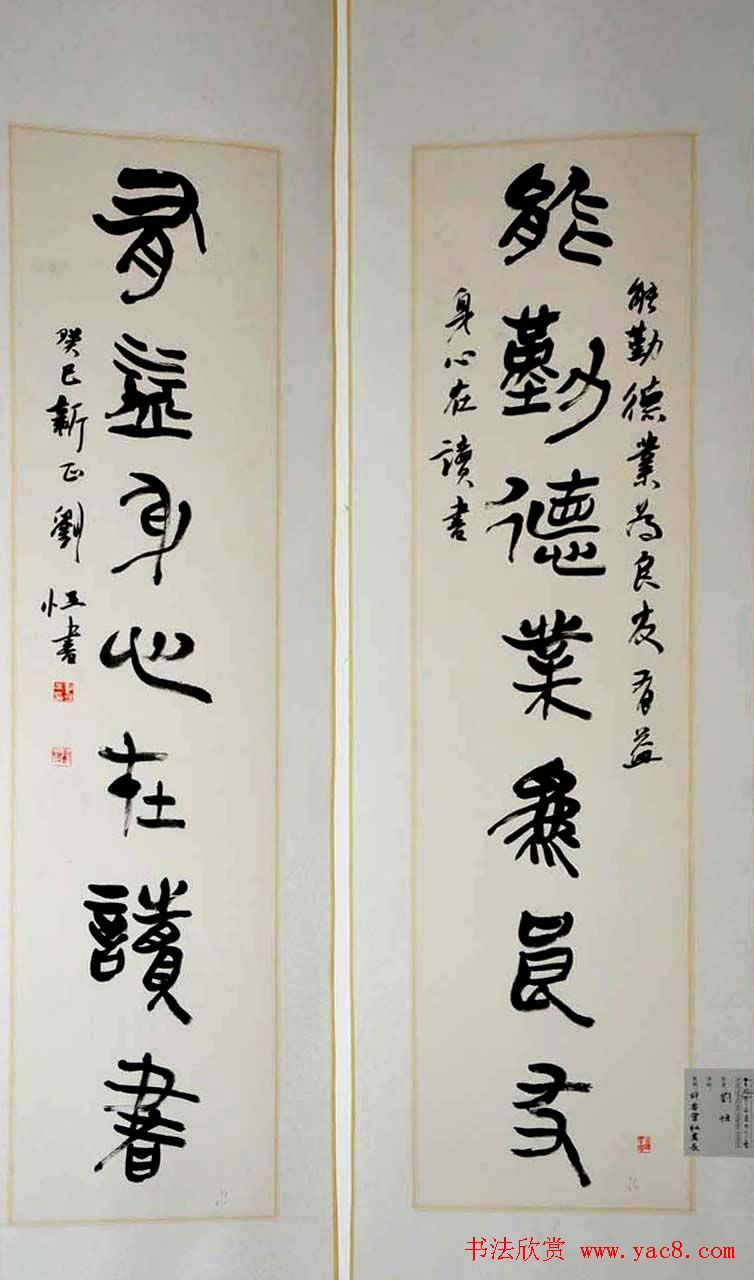 能勤德業為良友
能勤德業為良友有益
身心在讀書
有益身心在讀書
癸巳新正劉恒書
劉恒
书法欣赏 www.yac8.com